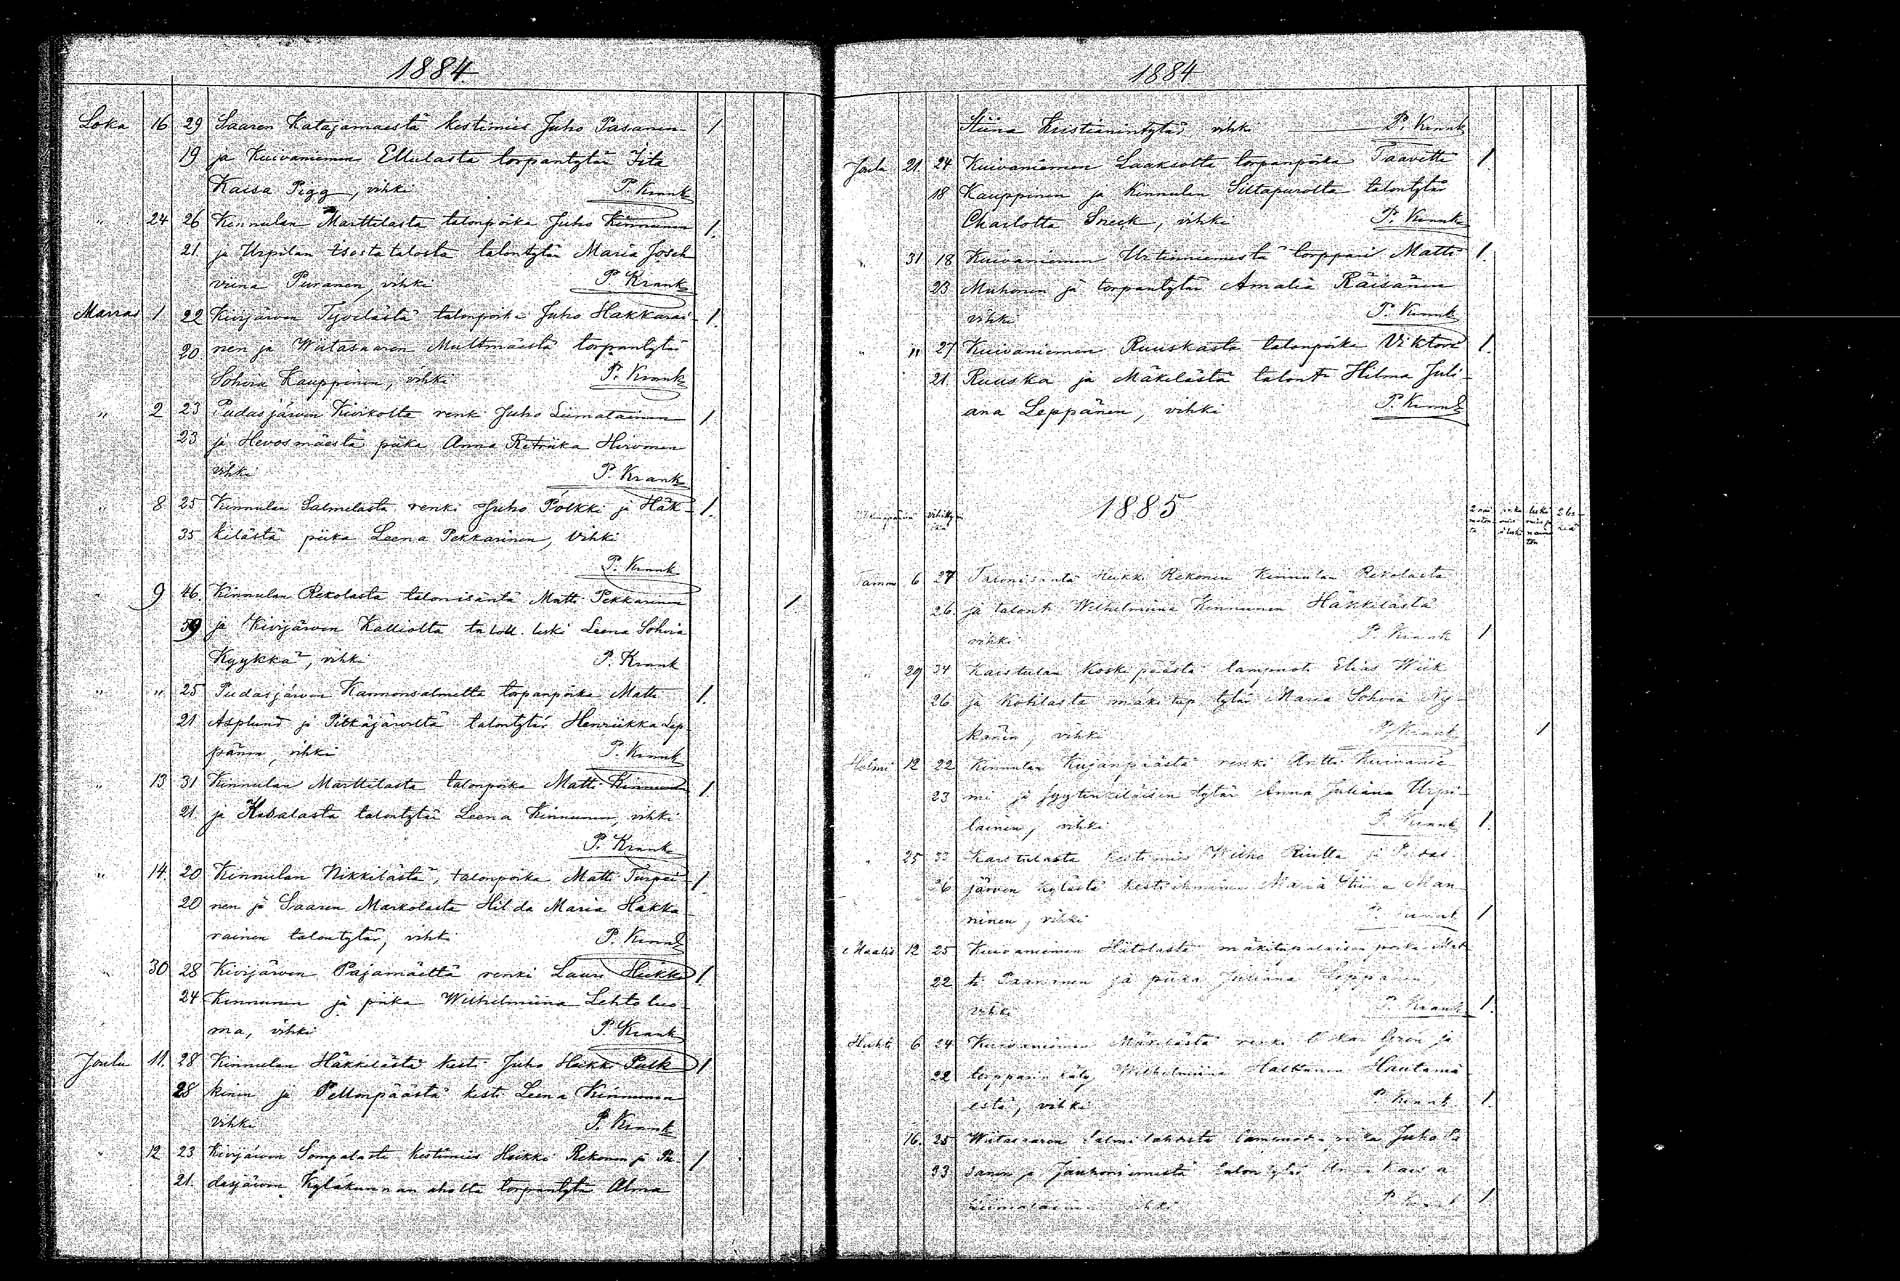 1884
Loka 16 29 Saaren Katajamaestä kestimies Juho Pasanen 1
19 ja Kuivaniemen Ellulasta torpantytär Iita
Kaisa Pigg, vihki P. Krank
" 24 26 Kinnulan Marttilasta talonpoika Juho Kinnunen 1.
21. ja Urpilan Isostatalosta talontytär Maria Josef
viina Piiranen, vihki P. Krank
Marras 1 22 Kivijärven Tyvelästä talonpoika Juho Hakkarai- 1.
20 nen ja Wiitasaaren Multmäestä torpantytär
Sohvia Kauppinen, vihki P. Krank
" 2 23 Pudasjärven Kivikolta renk Juho Liimatainen 1
23 ja Hevosmäestä piika Anna Retriika Hirvonen
vihki P. Krank
8 25 Kinnulan Salmelasta renki Juho Pölkki ja Häk- 1.
35 kilästä piika Leena Pekkarinen, vihki
P. Krank
" 9 46. Kinnulan Rekolasta talonisäntä Matti Pekkarinen 1
59 ja Kivijärven Kalliolta taloll. leski Leena Sohvia
Kyykkä, vihki P. Krank
" " 25 Pudasjärven Kannonsalmelta torpanpoika Matti 1.
21 Asplund ja Pitkäjärveltä talontytär Henriikka Lep-
pänen, vihki P. Krank
" 13 31 Kinnulan Marttilasta talonpoika Matti Kinnunen 1
21. ja Hakalasta talontytär Leena Kinnunen, vihki
P. Krank
" 14. 20 Kinnulan Nikkilästä, talonpoika Matti Turpei- 1.
20 nen ja Saaren Markolasta Hilda Maria Hakka-
rainen talontytär, vihki P. Krank
30 28 Kivijärven Pajamäeltä renki Lauri Heikki 1.
24 Kinnunen ja piika Wilhelmiina Lehtoluo-
ma, vihki P. Krank
Joulu 11. 28 Kinnulan Häkkilästä kest. Juho Heikki Pulk- 1
28 kinen ja Peltonpäästä kest. Leena Kinnunen
vihki P. Krank
" 12 23 Kivijärven Sompalasta kestimies Heikki Rekonen ja Pu- 1
21. dasjärven Kyläkunnan aholta torpantytär Alma
1884
Stiina Kristianintytär vihki P. Krank
Joulu 21. 24 Kuivaniemen Laaksolta torpanpoika Taavetti 1.
18 Kauppinen ja Kinnulan Siltapurolta talontytär
Charlotta Sneck, vihki P. Krank
" 31 18 Kuivaniemen Urtioniemestä torppari Matti 1.
23 Muhonen ja torpantytär Amalia Räisänen
vihki P. Krank
" " 27 Kuivaniemen Ruuskasta talonpoika Viktor 1.
21. Ruuska ja Mäkelästä talontr Hilma Juli-
ana Leppänen, vihki P. Krank
1885
Tammi 6 27 Talonisäntä Heikki Rekonen Kinnulan Rekolasta
26. ja talontr Wilhelmiina Kinnunen Häkkilästä
vihki P. Krank 1
" 29 34 Karstulan Koskipäästä lampuoti Elias Wiik
26 ja Kotilasta mäkitup. tytär Maria Sohvia Ny-
känen, vihki P. Krank 1
Helmi 12 22 Kinnulan Kujanpäästä renki Antti Kuivanie-
23 mi ja syytinkiläisen tytär Anna Juliana Urpi-
lainen, vihki P. Krank 1.
" 25 32 Karstulasta kestimies Wilho Riutta ja Pudas-
26 järven kylästä kesti ihminen Maria Stiina Man-
ninen, vihki P. Krank 1
Maalis 12 25 Kuivaniemen Hiitolasta mäkitupalaisen poika Mat-
22 ti Paananen ja piika Juliana Leppänen,
vihki P. Krank 1.
Huhti 6 24 Kuivaniemen Mäkelästä renki Oskar Gron ja
22 torpparin käly Wilhelmiina Halttunen Hautamä-
estä, vihki P. Krank 1.
16. 25 Wiitasaaren Salmilahdesta lampuodin poika Juho Pa-
33 sanen ja Jauhoniemestä talontytär Anna Kaisa
Liimatainen vihki P. Krank 1